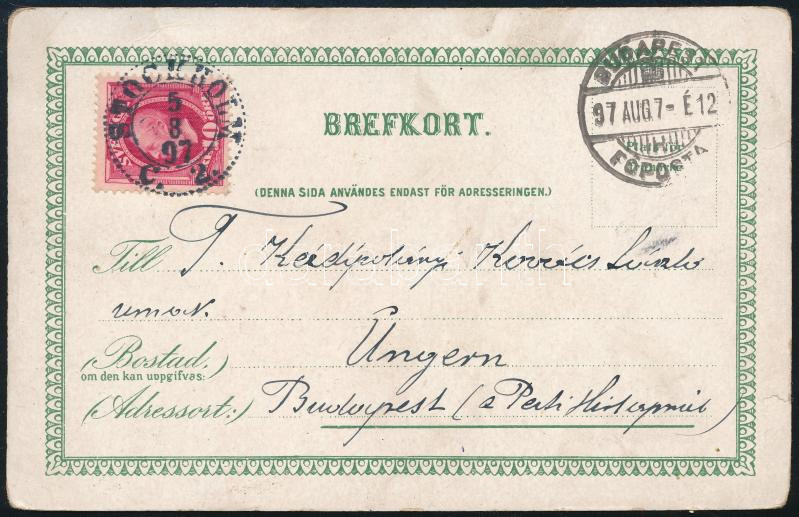 STOCKHOLM
5
8
97
C. 2.
BUDAPEST
97 AUG. 7 - É 12
FŐPOSTA
BREFKORT.
Plats för
(DENNA SIDA ANVÄNDES ENDAST FÖR ADRESSERINGEN.)
Till T. Kovács László
urnak.
(Bostad,) Ungern
om den kan uppgifvas:
(Adressort:) Budapest (a Pesti Hirlapnál)